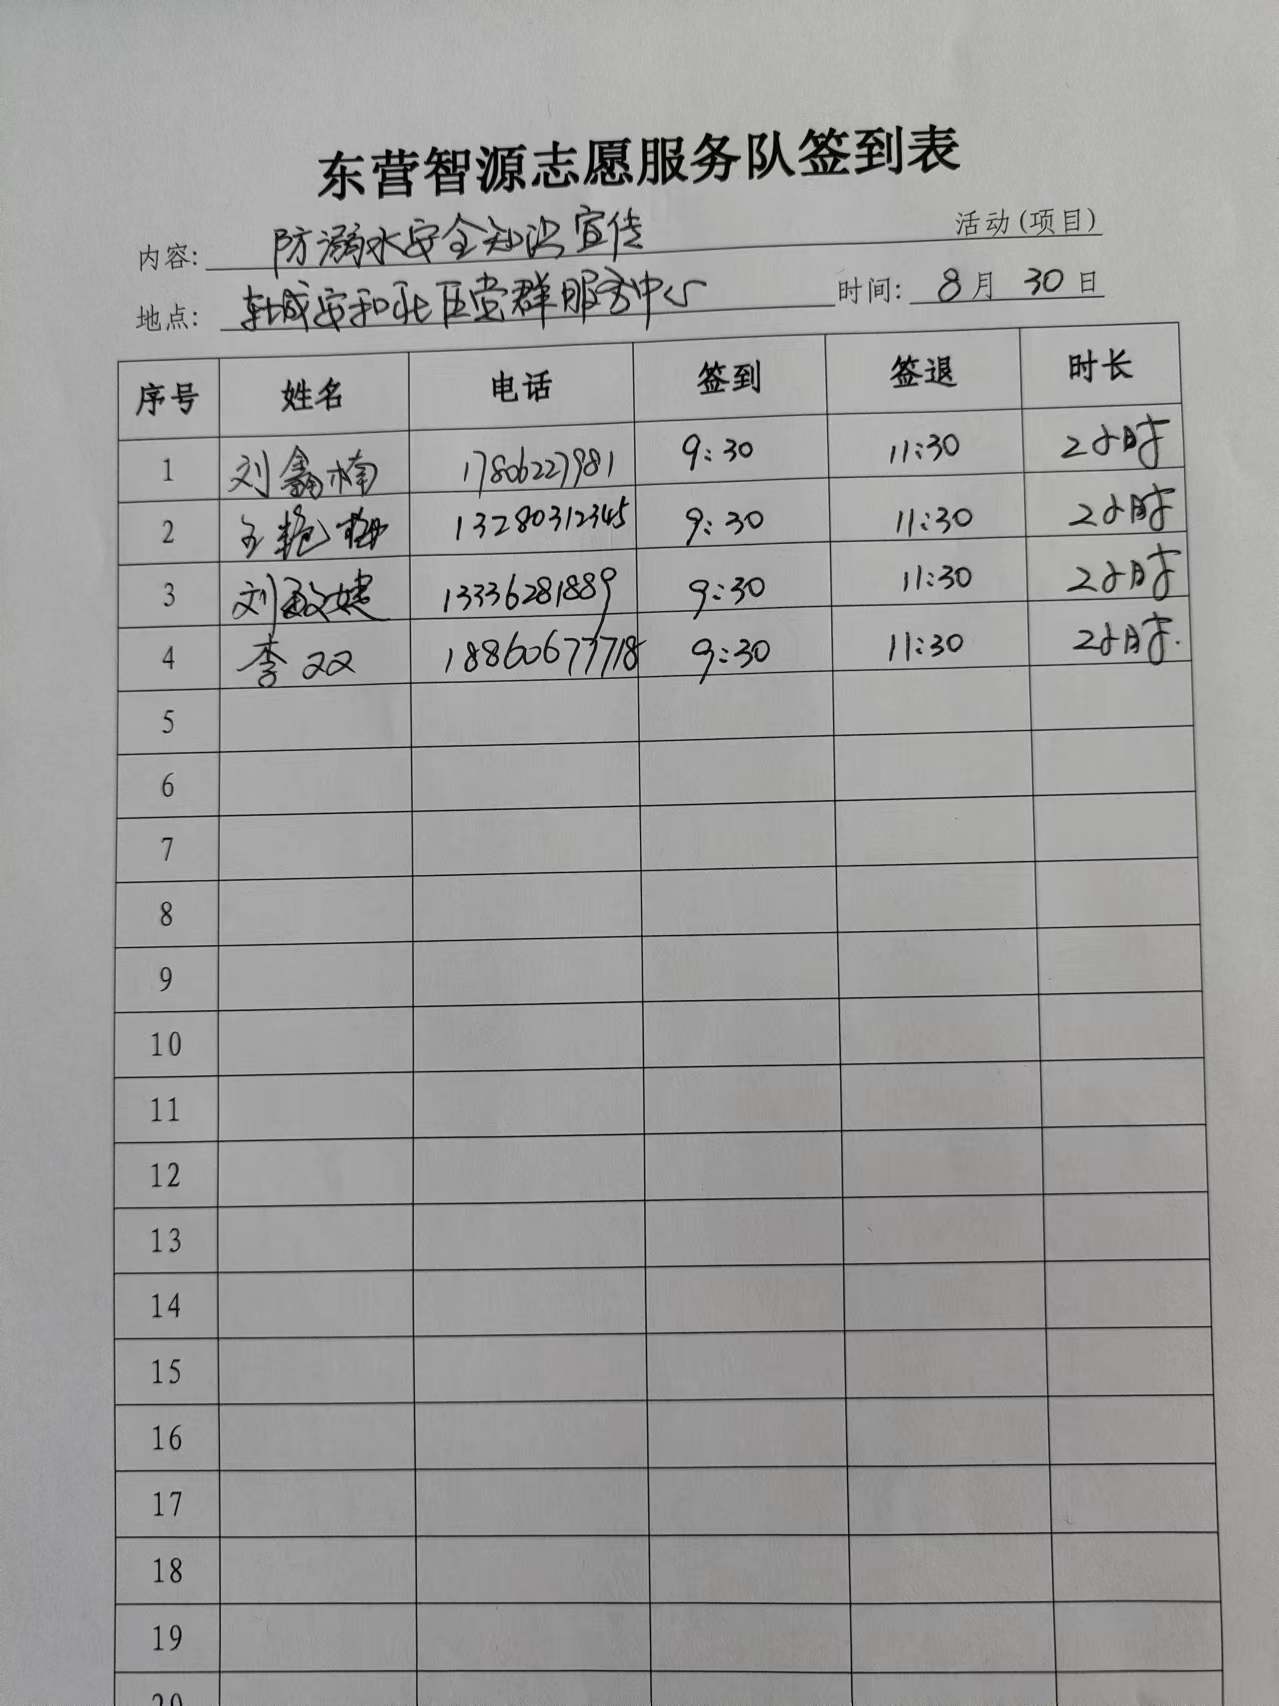 东营智源志愿服务队签到表
内容: 防溺水安全知识宣传 活动(项目)
地点: 东城安和社区党群服务中心 时间: 8月30日
序号 姓名 电话 签到 签退 时长
1 刘鑫楠 17806227981 9:30 11:30 2小时
2 王艳梅 13280312345 9:30 11:30 2小时
3 刘敏婕 13336281889 9:30 11:30 2小时
4 李双 18860677718 9:30 11:30 2小时.
5
6
7
8
9
10
11
12
13
14
15
16
17
18
19
20